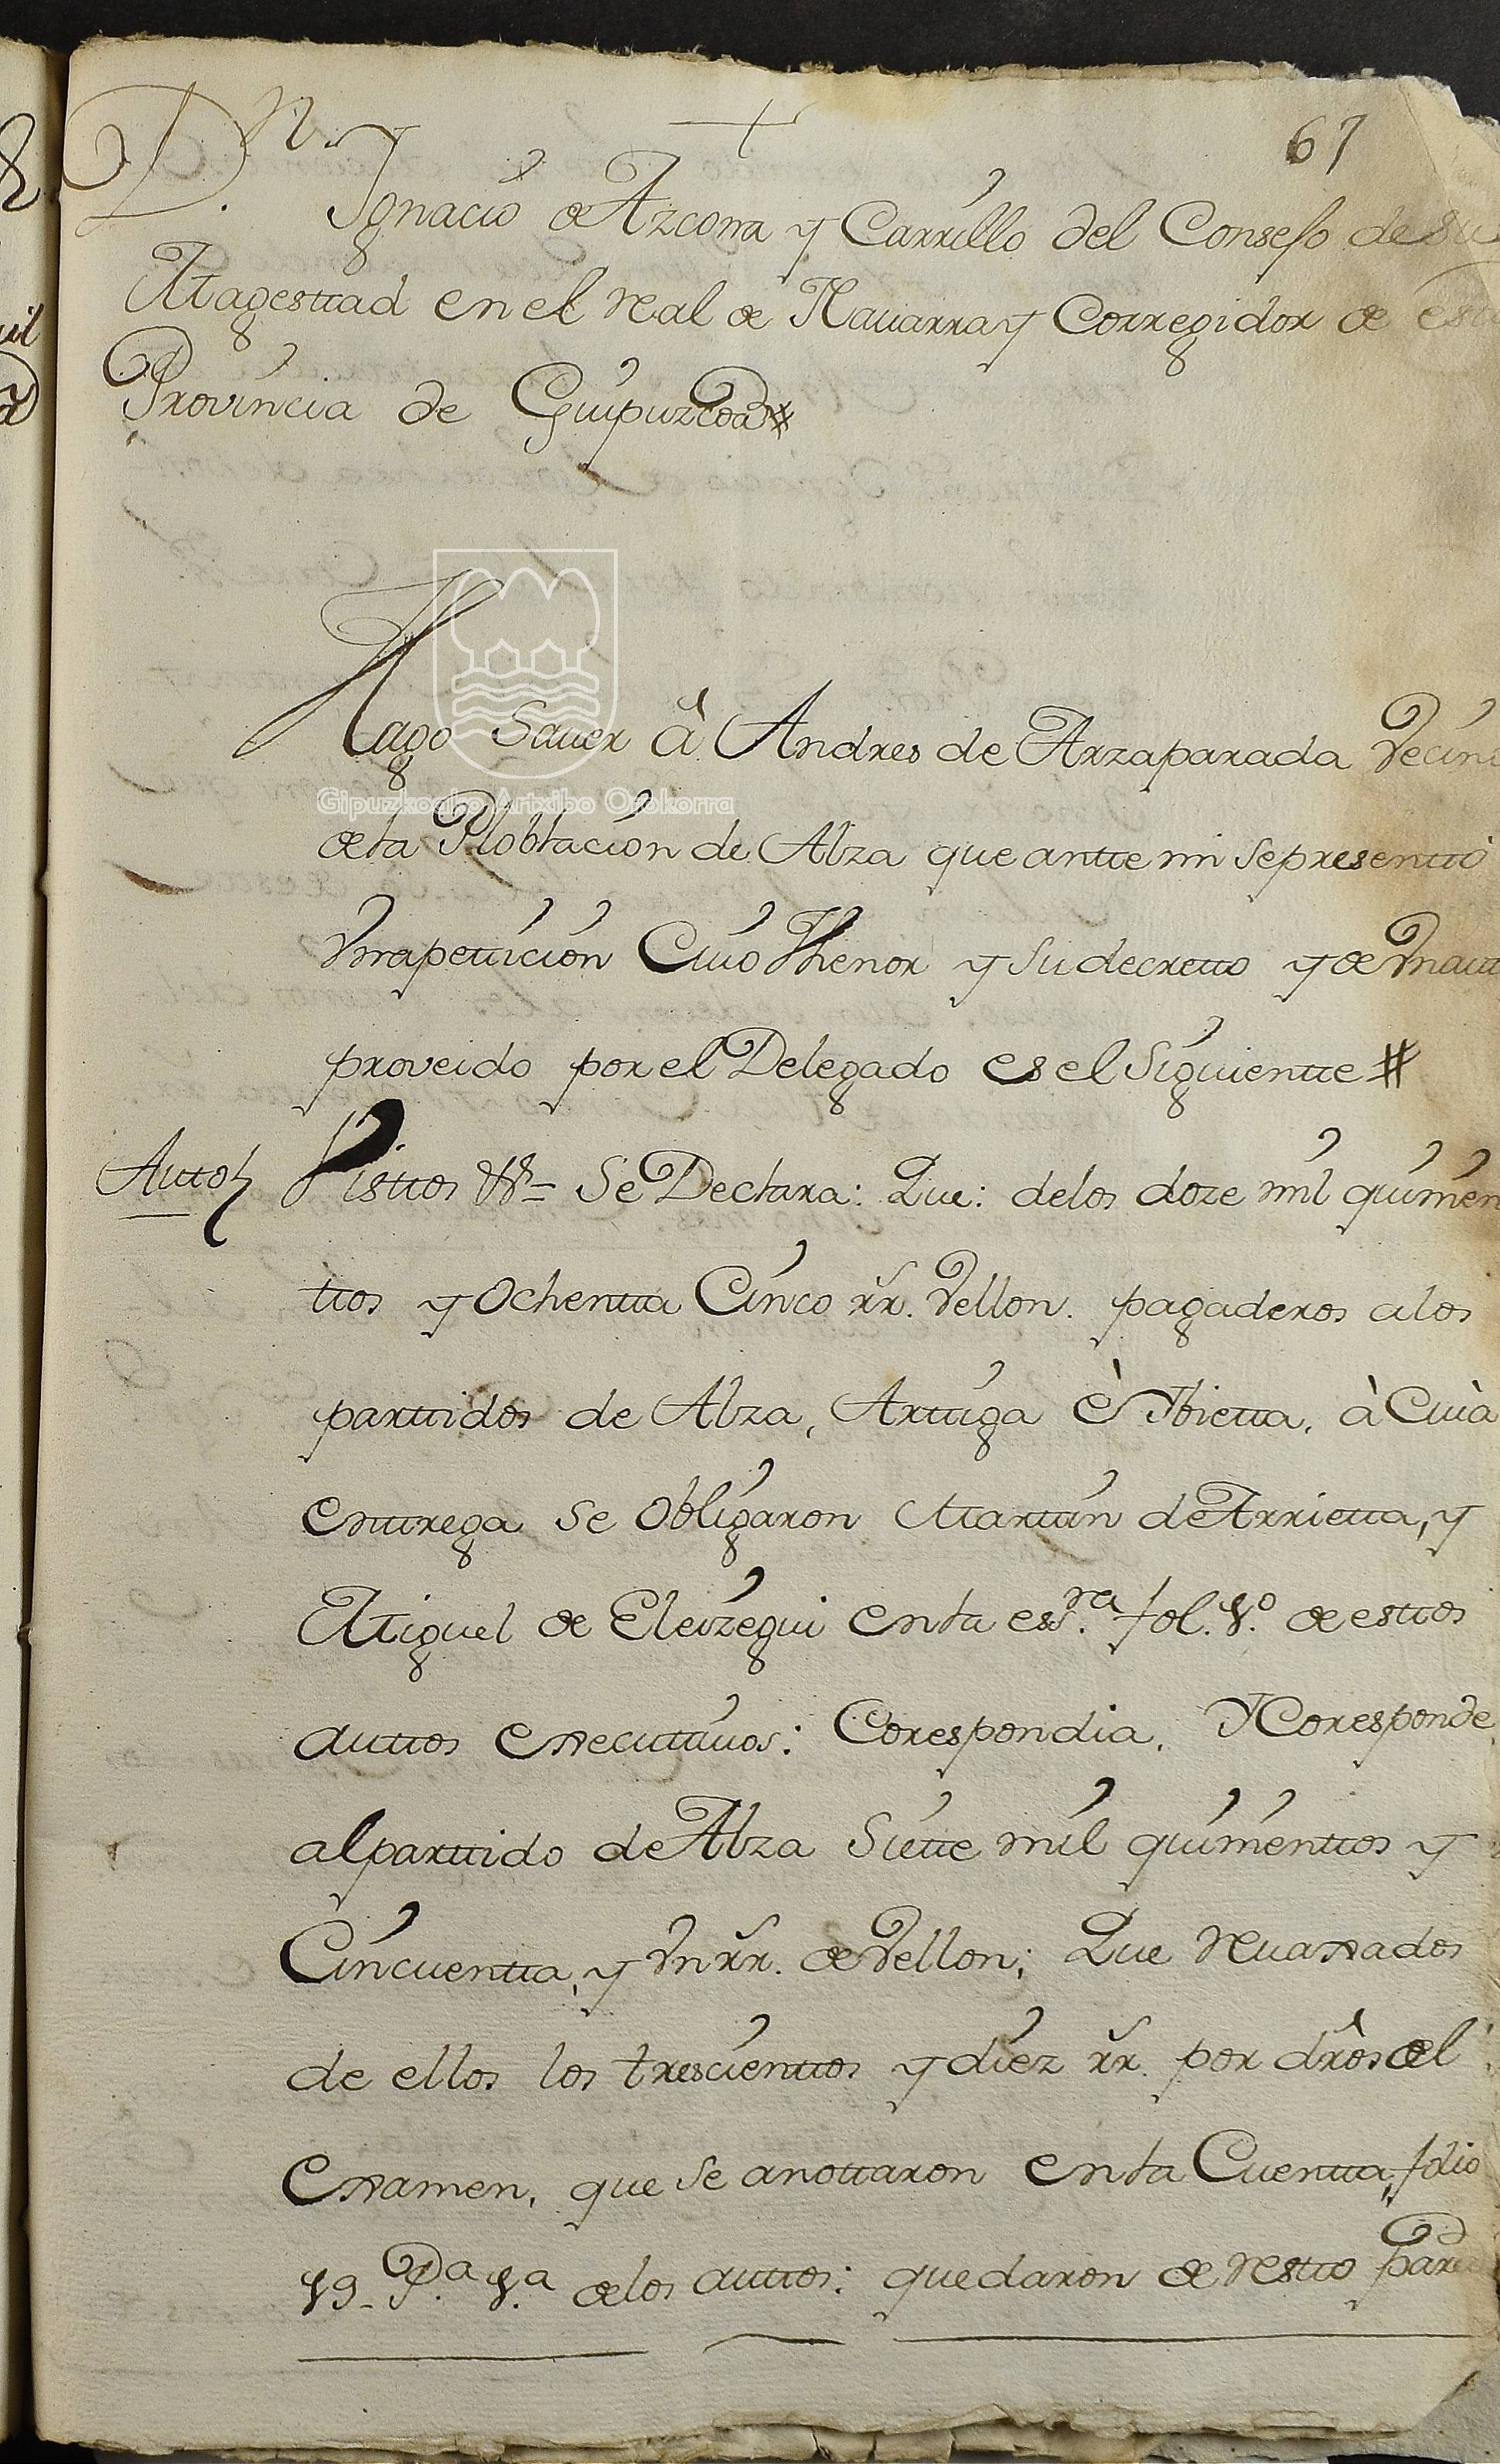 67
D.n Ignacio de Azcona y Carrillo del Consejo de su
Magestad en el Real de Navarra y Corregidor de esta
Provincia de Guipuzcoa #
Hago Saver â Andres de Arzaparada Vecino
de la Poblacion de Alza que ante mi se presentto
Vna petticion Cuio Thenor y su decretto y de Vn autto
proveido por el Delegado es el Siguientte #
Gipuzkoako Artxibo Orokorra
Autto Visttos &.a = Se Declara: Que: de los doze mil quinien
ttos y Ochentta Cinco rr. Vellon. pagaderos a los
parttidos de Alza, Arttiga è Ybietta, à Cuià
enttrega se Obligaron Marttin de Arrietta, y
Miguel de Eleizegui en la ess.ra fol. 1.o de esttos
auttos executtivos: Corespondia, Y Coresponde
al parttido de Alza Siette mil quinienttos y
Cincuentta, y Vn rr. de Vellon; Que Revaxados
de ellos los trescienttos y diez rr. por dros del
examen, que se anottaron en la Cuentta, folio
19. P.a 1.a de los auttos: quedaron de restto para